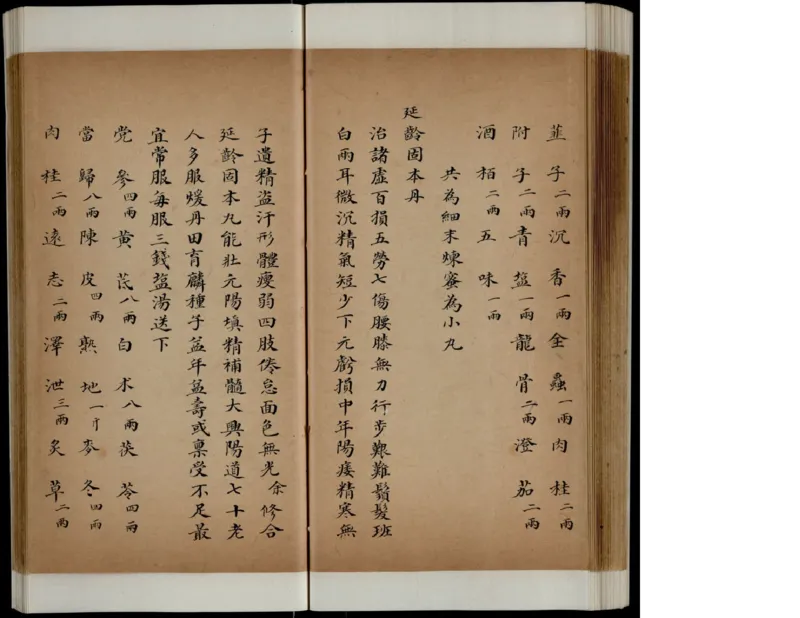 韮子二兩沉香一兩全蟲一兩肉桂二兩
附子二兩青盐一兩龍骨二兩澄茄二兩
酒栢二兩五味一兩
共為細末煉蜜為小丸
延齡固本丹
治諸虛百損五勞七傷腰膝無力行步艱難鬚髮班
白兩耳微沉精氣短少下元虧損中年陽痿精寒無
子遺精盜汗形體瘦弱四肢倦怠面色無光余修合
延齡固本丸能壯元陽填精補髓大興陽道七十老
人多服煖丹田育麟種子益年益壽或稟受不足最
宜常服每服三錢盐湯送下
党參四兩黃芪八兩白朮八兩茯苓四兩
當歸八兩陳皮四兩熟地一斤麥冬四兩
肉桂二兩遠志二兩澤泄三兩炙草二兩